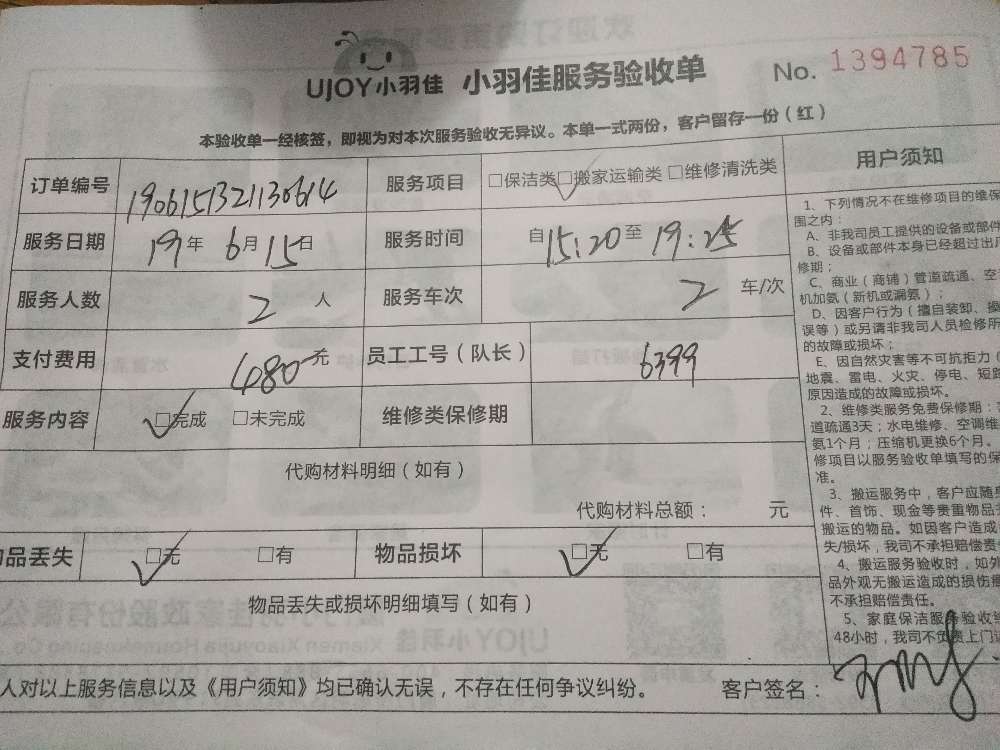 UJOY小羽佳 小羽佳服务验收单 No. 1394785
本验收单一经核签，即视为对本次服务验收无异议。本单一式两份，客户留存一份（红）
订单编号 190615132113​0614 服务项目 □保洁类 □搬家运输类 □维修清洗类
服务日期 19年 6月 15日 服务时间 自15:20至19:25
服务人数 2 人 服务车次 2 车/次
支付费用 480 元 员工工号（队长） 6399
服务内容 □完成 □未完成 维修类保修期
代购材料明细（如有）
代购材料总额： 元
品丢失 □无 □有 物品损坏 □无 □有
物品丢失或损坏明细填写（如有）
人对以上服务信息以及《用户须知》均已确认无误，不存在任何争议纠纷。 客户签名：
用户须知
1、下列情况不在维修项目的维保
围之内：
A、非我司员工提供的设备或部件
B、设备或部件本身已经超过出
修期；
C、商业（商铺）管道疏通、空
机加氨（新机或漏氨）；
D、因客户行为（擅自装卸、操
误等）或另请非我司人员检修所
的故障或损坏；
E、因自然灾害等不可抗拒力（
地震、雷电、火灾、停电、短路
原因造成的故障或损坏。
2、维修类服务免费保修期：
道疏通3天；水电维修、空调维
氨1个月；压缩机更换6个月。
修项目以服务验收单填写的保
准。
3、搬运服务中，客户应随身
件、首饰、现金等贵重物品
搬运的物品。如因客户造成
失/损坏，我司不承担赔偿责
4、搬运服务验收时，如外
品外观无搬运造成的损伤痕
不承担赔偿责任。
5、家庭保洁服务验收
48小时，我司不负责上门